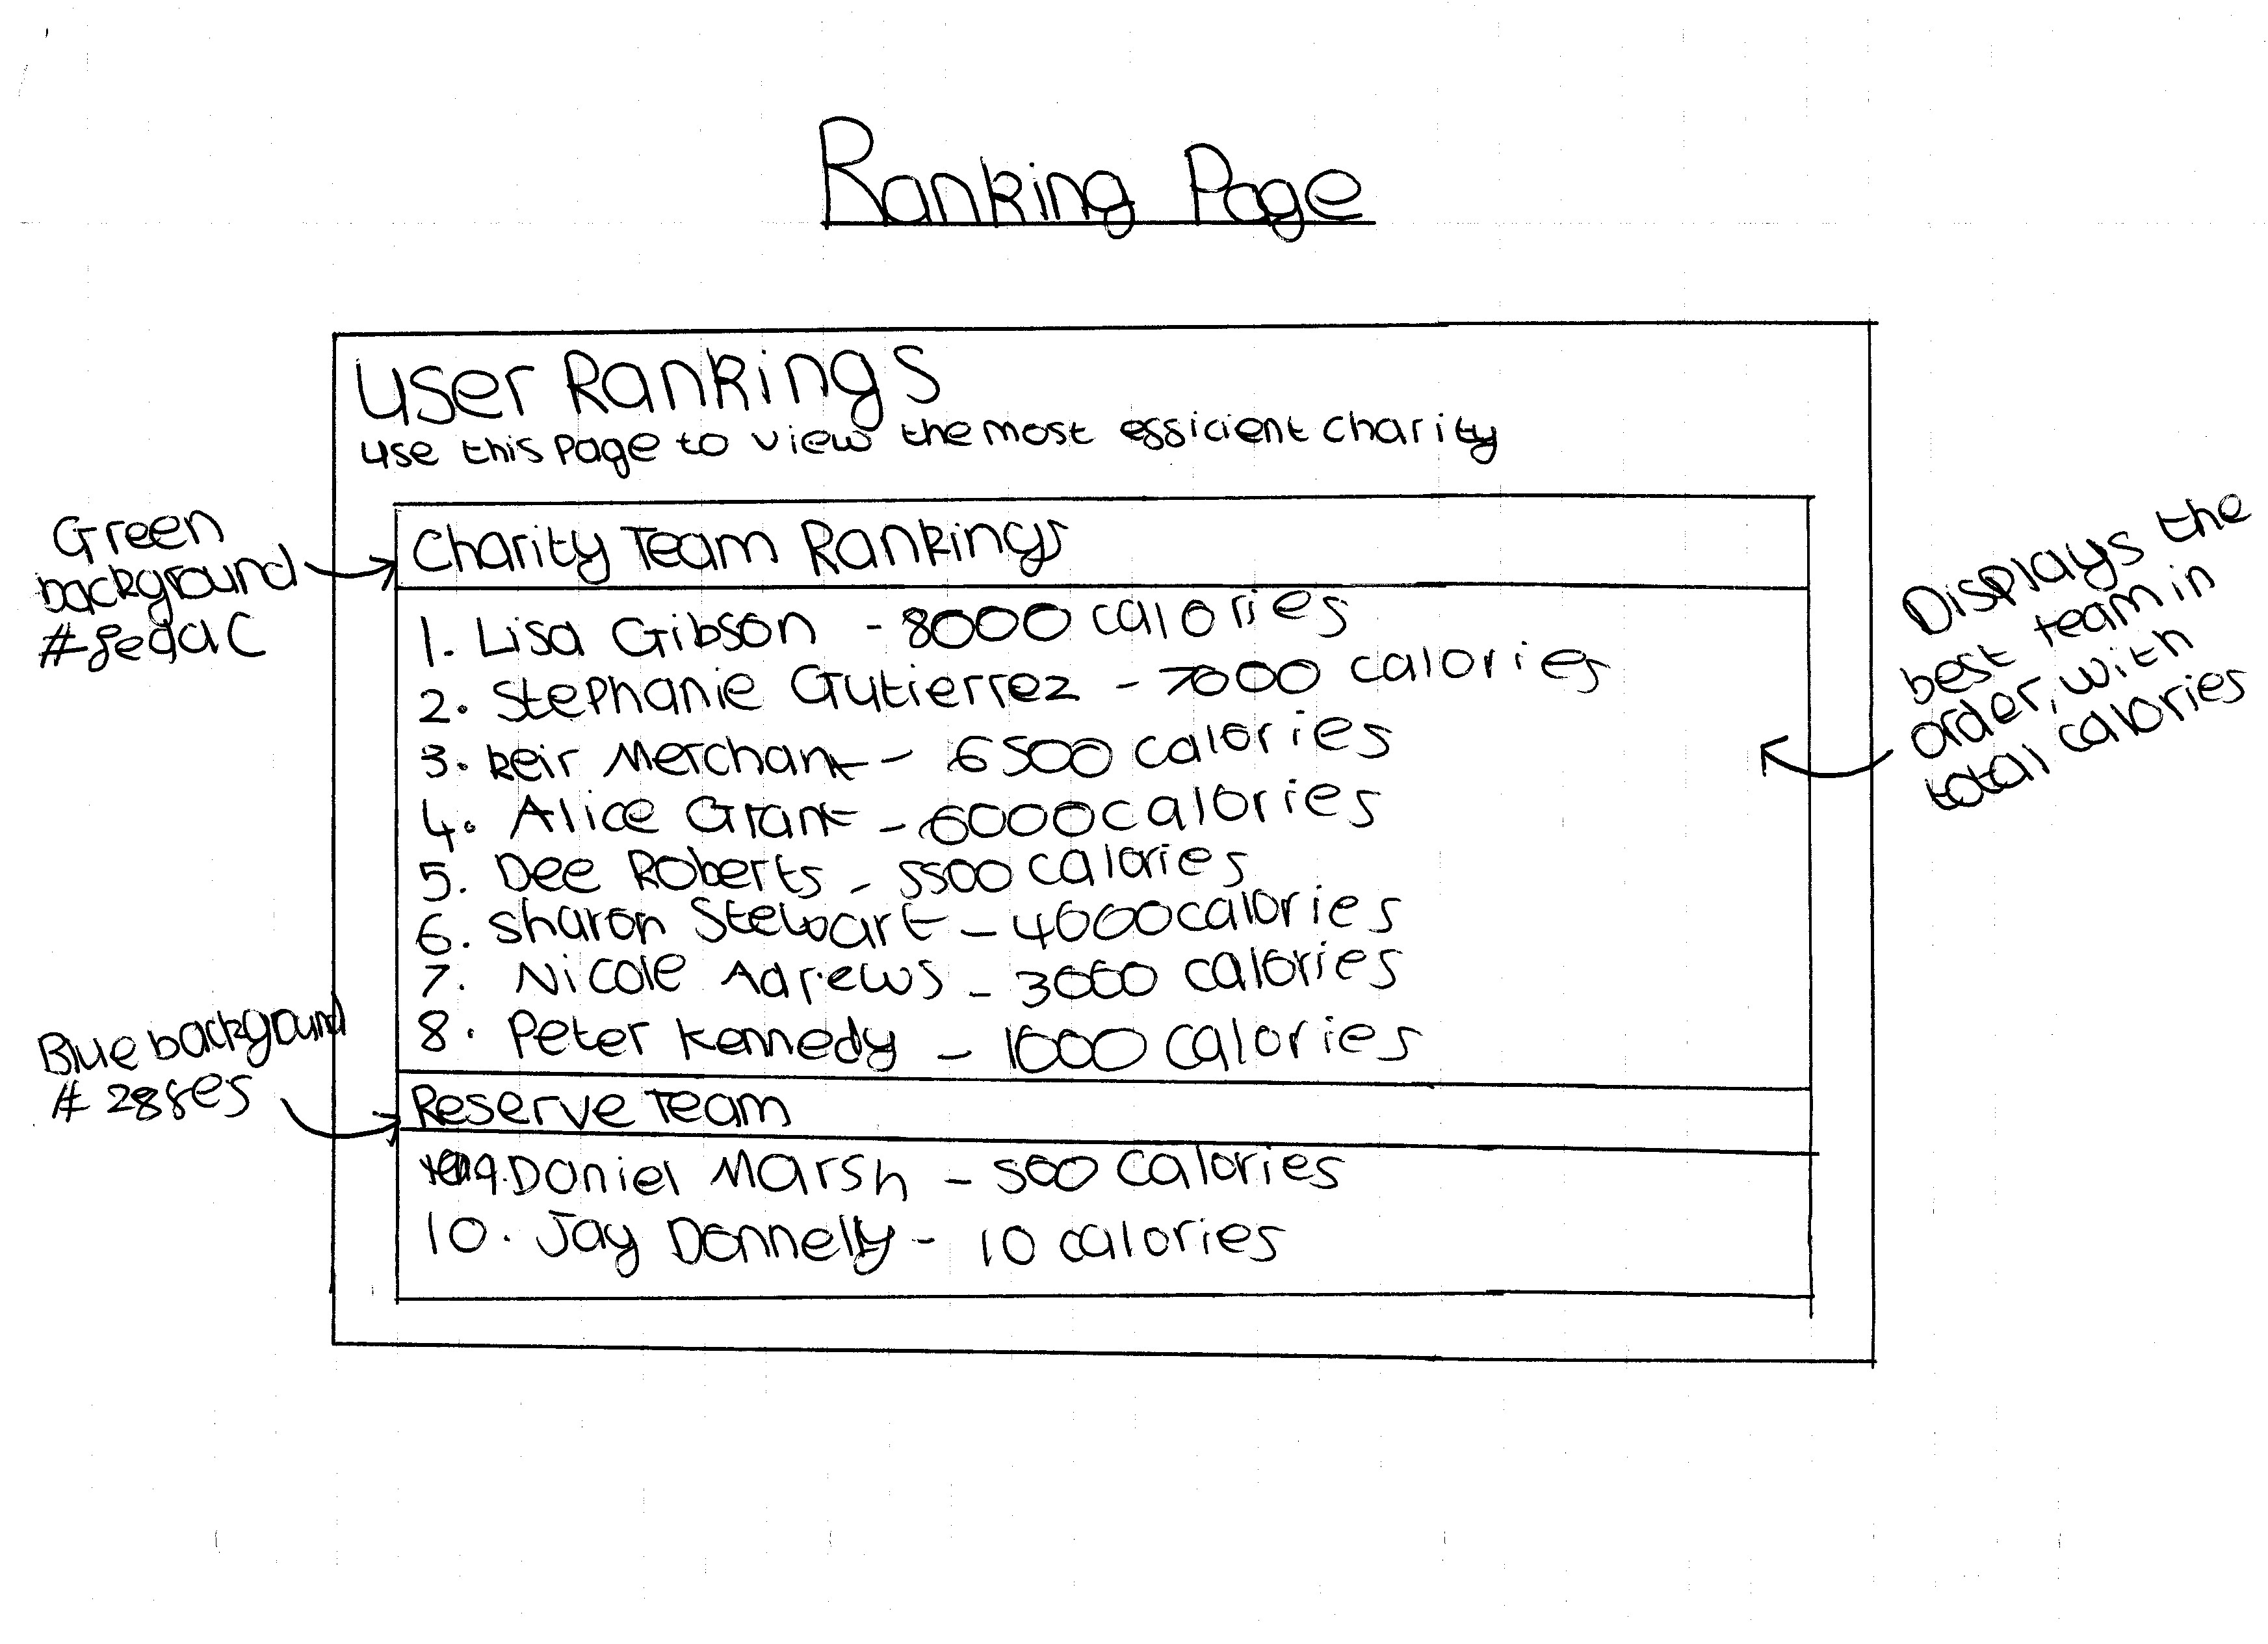 Ranking Page
User Rankings
Use this page to view the most efficient charity
Green
background
Charity Team Rankings
1. Lisa Gibson - 8000 calories
2. Stephanie Gutierrez - 7000 calories
3. Keir Merchant - 6500 calories
4. Alice Grant - 6000 calories
5. Dee Roberts - 5500 calories
6. Sharon Stewart - 4000 calories
7. Nicole Adrews - 3000 calories
8. Peter Kennedy - 1000 calories
Displays the
best team in
order, with
total calories
Blue background
Reserve Team
9. Daniel Marsh - 500 calories
10. Jay Donnelly - 10 calories